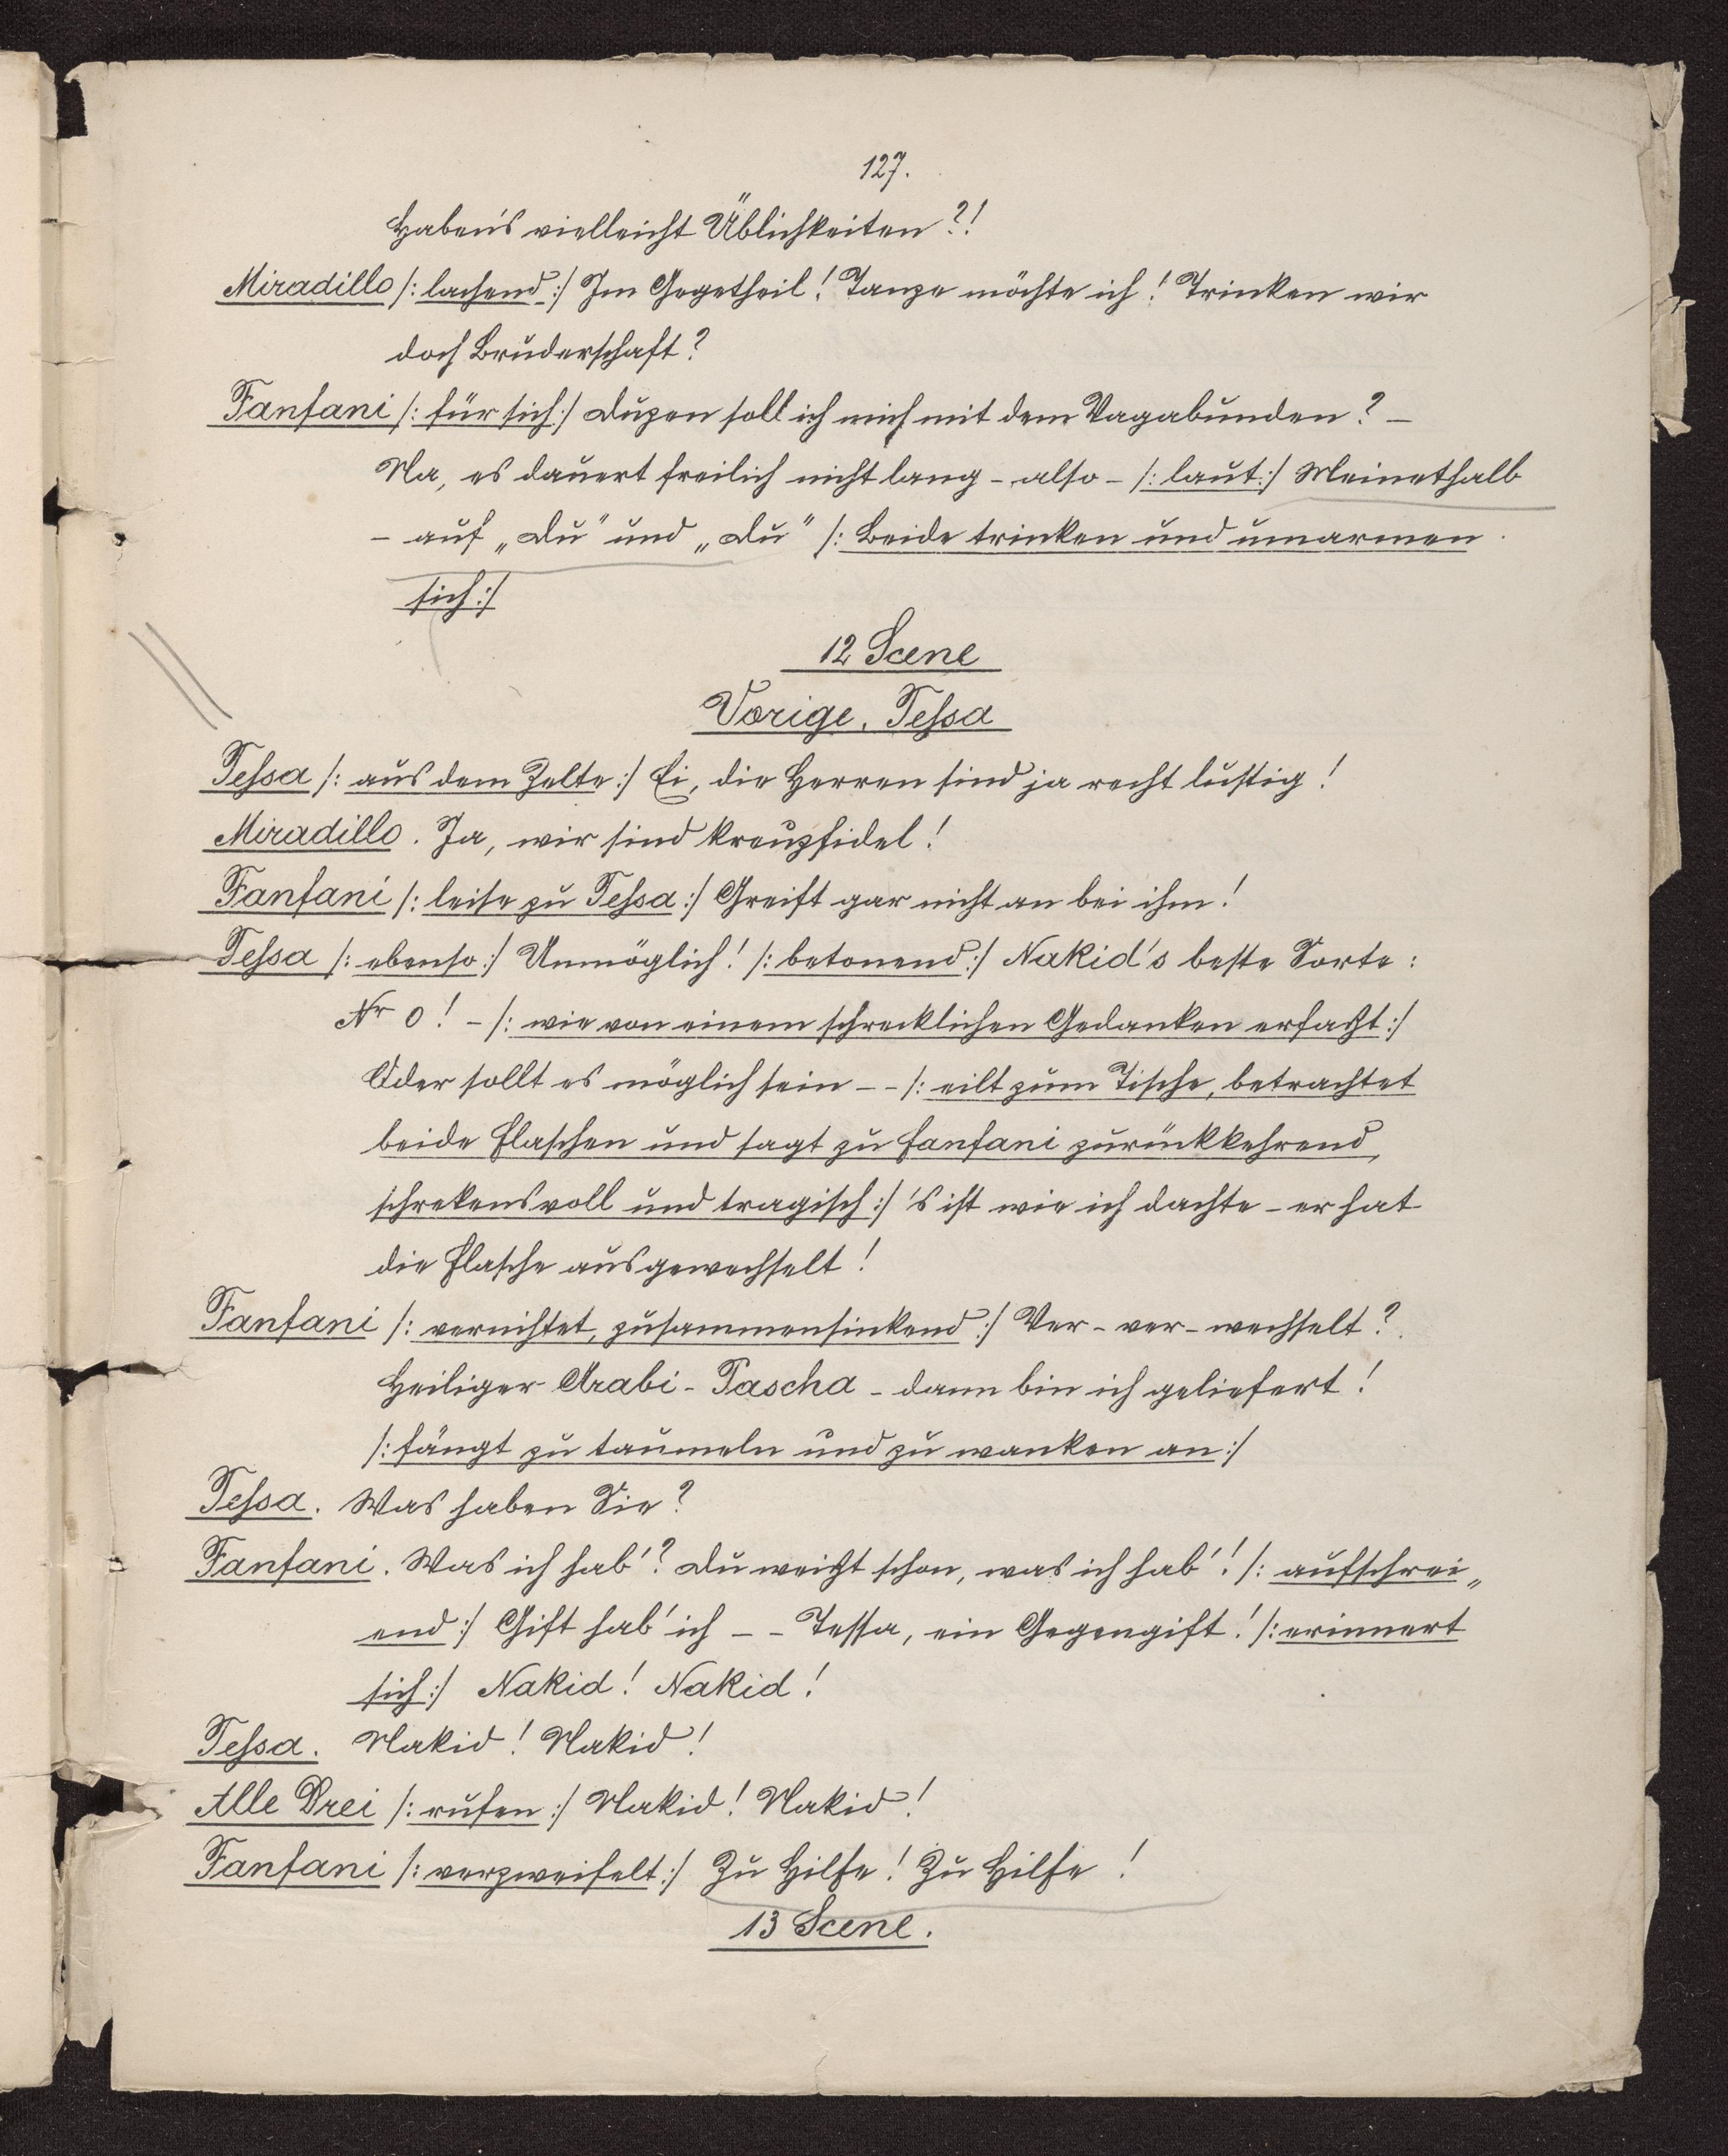 127.
Haben's vielleicht Üblichkeiten?!
Miradillo /: lachend :/ Im Gegetheil! Tanze möchte ich! Trinken wir
doch Bruderschaft?
Fanfani /: für sich :/ Duzen soll ich mich mit dem Vagabunden? –
Na, es dauert freilich nicht lang – also – /: laut :/ Meinethalb
– auf „Du" und „Du" /: Beide trinken und umarmen
sich :/
12 Scene
Vorige. Tessa
Tessa /: aus dem Zelte :/ Ei, die Herren sind ja recht lustig!
Miradillo. Ja, wir sind kreuzfidel!
Fanfani /: leise zu Tessa :/ Greift gar nicht an bei ihm!
Tessa /: ebenso :/ Unmöglich! /: betonend :/ Nakid's beste Sorte:
Nr 0! – /: wie von einem schrecklichen Gedanken erfaßt :/
Oder sollt es möglich sein – – /: eilt zum Tische, betrachtet
beide Flaschen und sagt zu Fanfani zurückkehrend,
schrekensvoll und tragisch :/ 's ist wie ich dachte – er hat
die Flasche ausgewechselt!
Fanfani /: vernichtet, zusammensinkend :/ Ver – ver – wechselt?
Heiliger Arabi - Pascha – dann bin ich geliefert!
/: fängt zu taumeln und zu wanken an :/
Tessa. Was haben Sie?
Fanfani. Was ich hab'? Du weißt schon, was ich hab'! /: aufschrei„
end :/ Gift hab' ich – – Tessa, ein Gegengift! /: erinnert
sich :/ Nakid! Nakid!
Tessa. Nakid! Nakid!
Alle Drei /: rufen :/ Nakid! Nakid!
Fanfani /: verzweifelt :/ Zu Hilfe! Zu Hilfe!
13 Scene.